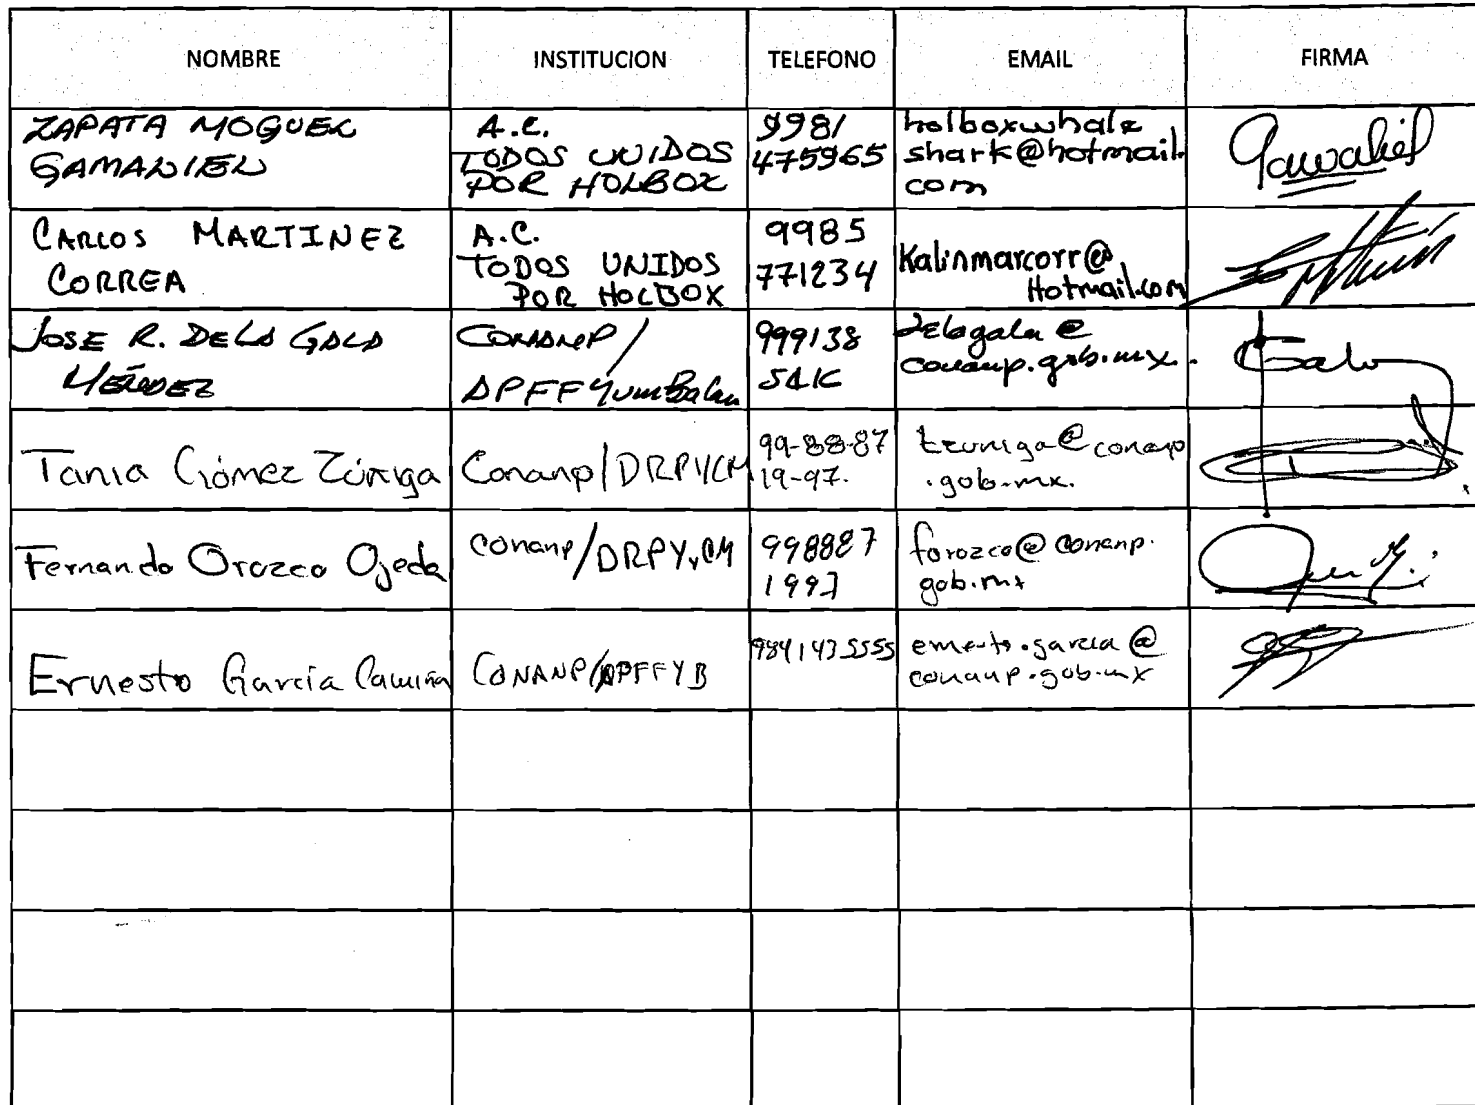 NOMBRE INSTITUCION TELEFONO EMAIL FIRMA
ZAPATA MOGUEL
GAMALIEL
A.C.
TODOS UNIDOS
POR HOLBOX
9981
475965
holboxwhale
shark@hotmail.
com
CARLOS MARTINEZ
CORREA
A.C.
TODOS UNIDOS
POR HOLBOX
9985
771234
Kalinmarcorr@
Hotmail.com
JOSE R. DE LA GALA
MÉNDEZ
CONANP/
APFFYumBalam
999138
delagala@
conanp.gob.mx.
Tania Gómez Zúñiga
Conanp/DRPYCM
99-88-87
19-97.
tzuniga@conanp
.gob.mx.
Fernando Orozco Ojeda
conanp/DRPYyCM
998887
1997
forozco@conanp.
gob.mx
Ernesto García
CONANP/APFFYB
9841435555
ernesto.garcia@
conanp.gob.mx